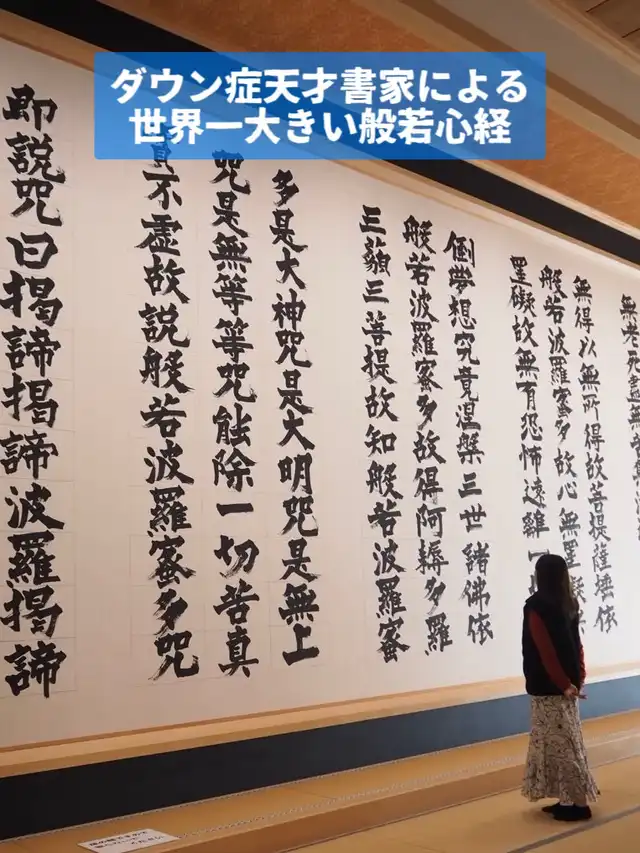 ダウン症天才書家による
世界一大きい般若心経
無老死
無得以無所得故菩提薩埵依
般若波羅蜜多故心無罣
罣礙故無有恐怖遠離一
倒夢想究竟涅槃三世諸佛依
般若波羅蜜多故得阿耨多羅
三藐三菩提故知般若波羅蜜
多是大神咒是大明咒是無上
咒是無等等咒能除一切苦真
實不虚故説般若波羅蜜多咒
即説咒曰揭諦揭諦波羅揭諦